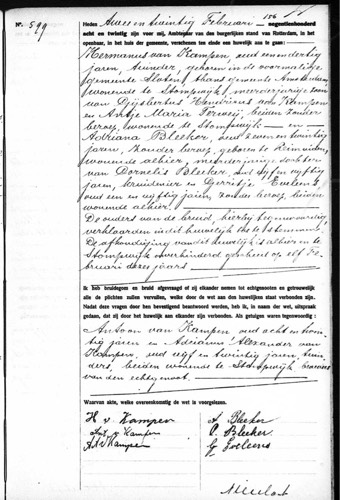 No. 599
Heden twee en twintig Februari negentienhonderd
acht en twintig zijn voor mij, Ambtenaar van den burgerlijken stand van Rotterdam, in het
openbaar, in het huis der gemeente, verschenen ten einde een huwelijk aan te gaan:
Hermanus van Kampen, oud een en dertig
jaren, tuinder, geboren in de voormalige
gemeente Sloten, thans gemeente Amsterdam
wonende te Stompwijk, meerderjarige zoon
van Dijsbertus Hendrikus van Kampen
en Antje Maria Verweij, beiden zonder
beroep, wonende te Stompwijk en
Adriana Bleeker, oud zeven en twintig
jaren, zonder beroep, geboren te
wonende alhier, meerderjarige dochter
van Cornelis Bleeker, oud vijf en vijftig
jaren, kruidenier en Gerritje Eveleens
oud een en vijftig jaren, zonder beroep, beiden
wonende alhier.
De ouders van de bruid, hierbij tegenwoordig,
verklaarden in dit huwelijk toe te stemmen.
De afkondiging van dit huwelijk is alhier en te
Stompwijk onverhinderd geschied op elf Fe-
bruari dezes jaars
Ik heb bruidegom en bruid afgevraagd of zij elkander nemen tot echtgenooten en getrouwelijk
alle de plichten zullen vervullen, welke door de wet aan den huwelijken staat verbonden zijn.
Nadat deze vragen door hen bevestigend beantwoord werden, heb ik, in naam der wet, uitspraak
gedaan, dat zij door het huwelijk aan elkander zijn verbonden. Als getuigen waren tegenwoordig:
Antoon van Kampen oud acht en twin-
tig jaren en Adrianus Alexander van
Kampen, oud vijf en twintig jaren, tuin-
ders, beiden wonende te Stompwijk, broeders
van den echtgenoot.
Waarvan akte, welke overeenkomstig de wet is voorgelezen.
H v. Kampen A. Bleeker
Ant. v. Kampen C. Bleeker
A.A. v Kampen G Eveleens